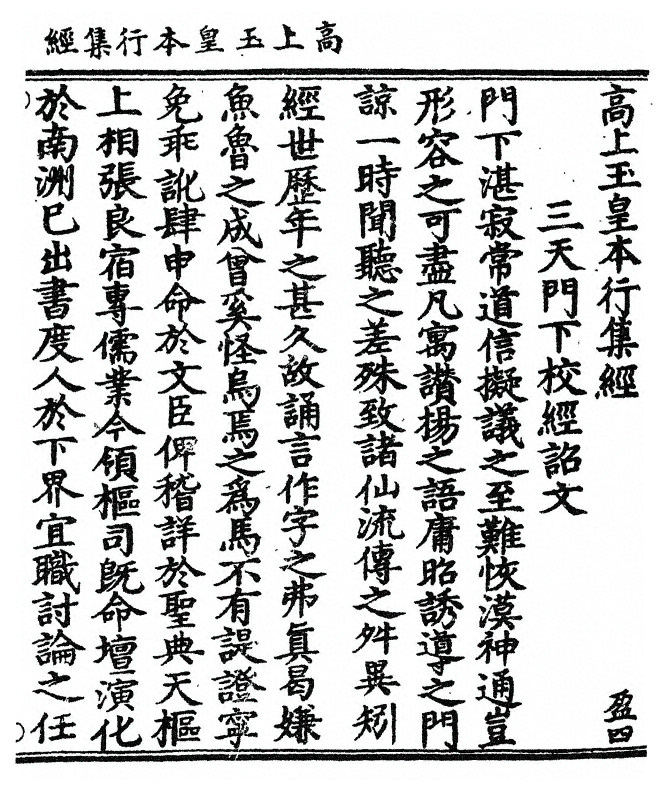 高上玉皇本行集經
高上玉皇本行集經　盈四
三天門下校經詔文
門下湛寂常道信擬議之至難恢漠神通豈
形容之可盡凡寓讃揚之語庸昭誘導之門
諒一時聞聽之差殊致諸仙流傳之舛異矧
經世歷年之甚久故誦言作字之弗眞曷嫌
魚魯之成曾奚怪烏焉之爲馬不有諟證寧
免乖訛肆申命於文臣俾稽詳於聖典天樞
上相張良宿專儒業今領樞司旣命壇演化
於南洲已出書度人於下界宜職討論之任